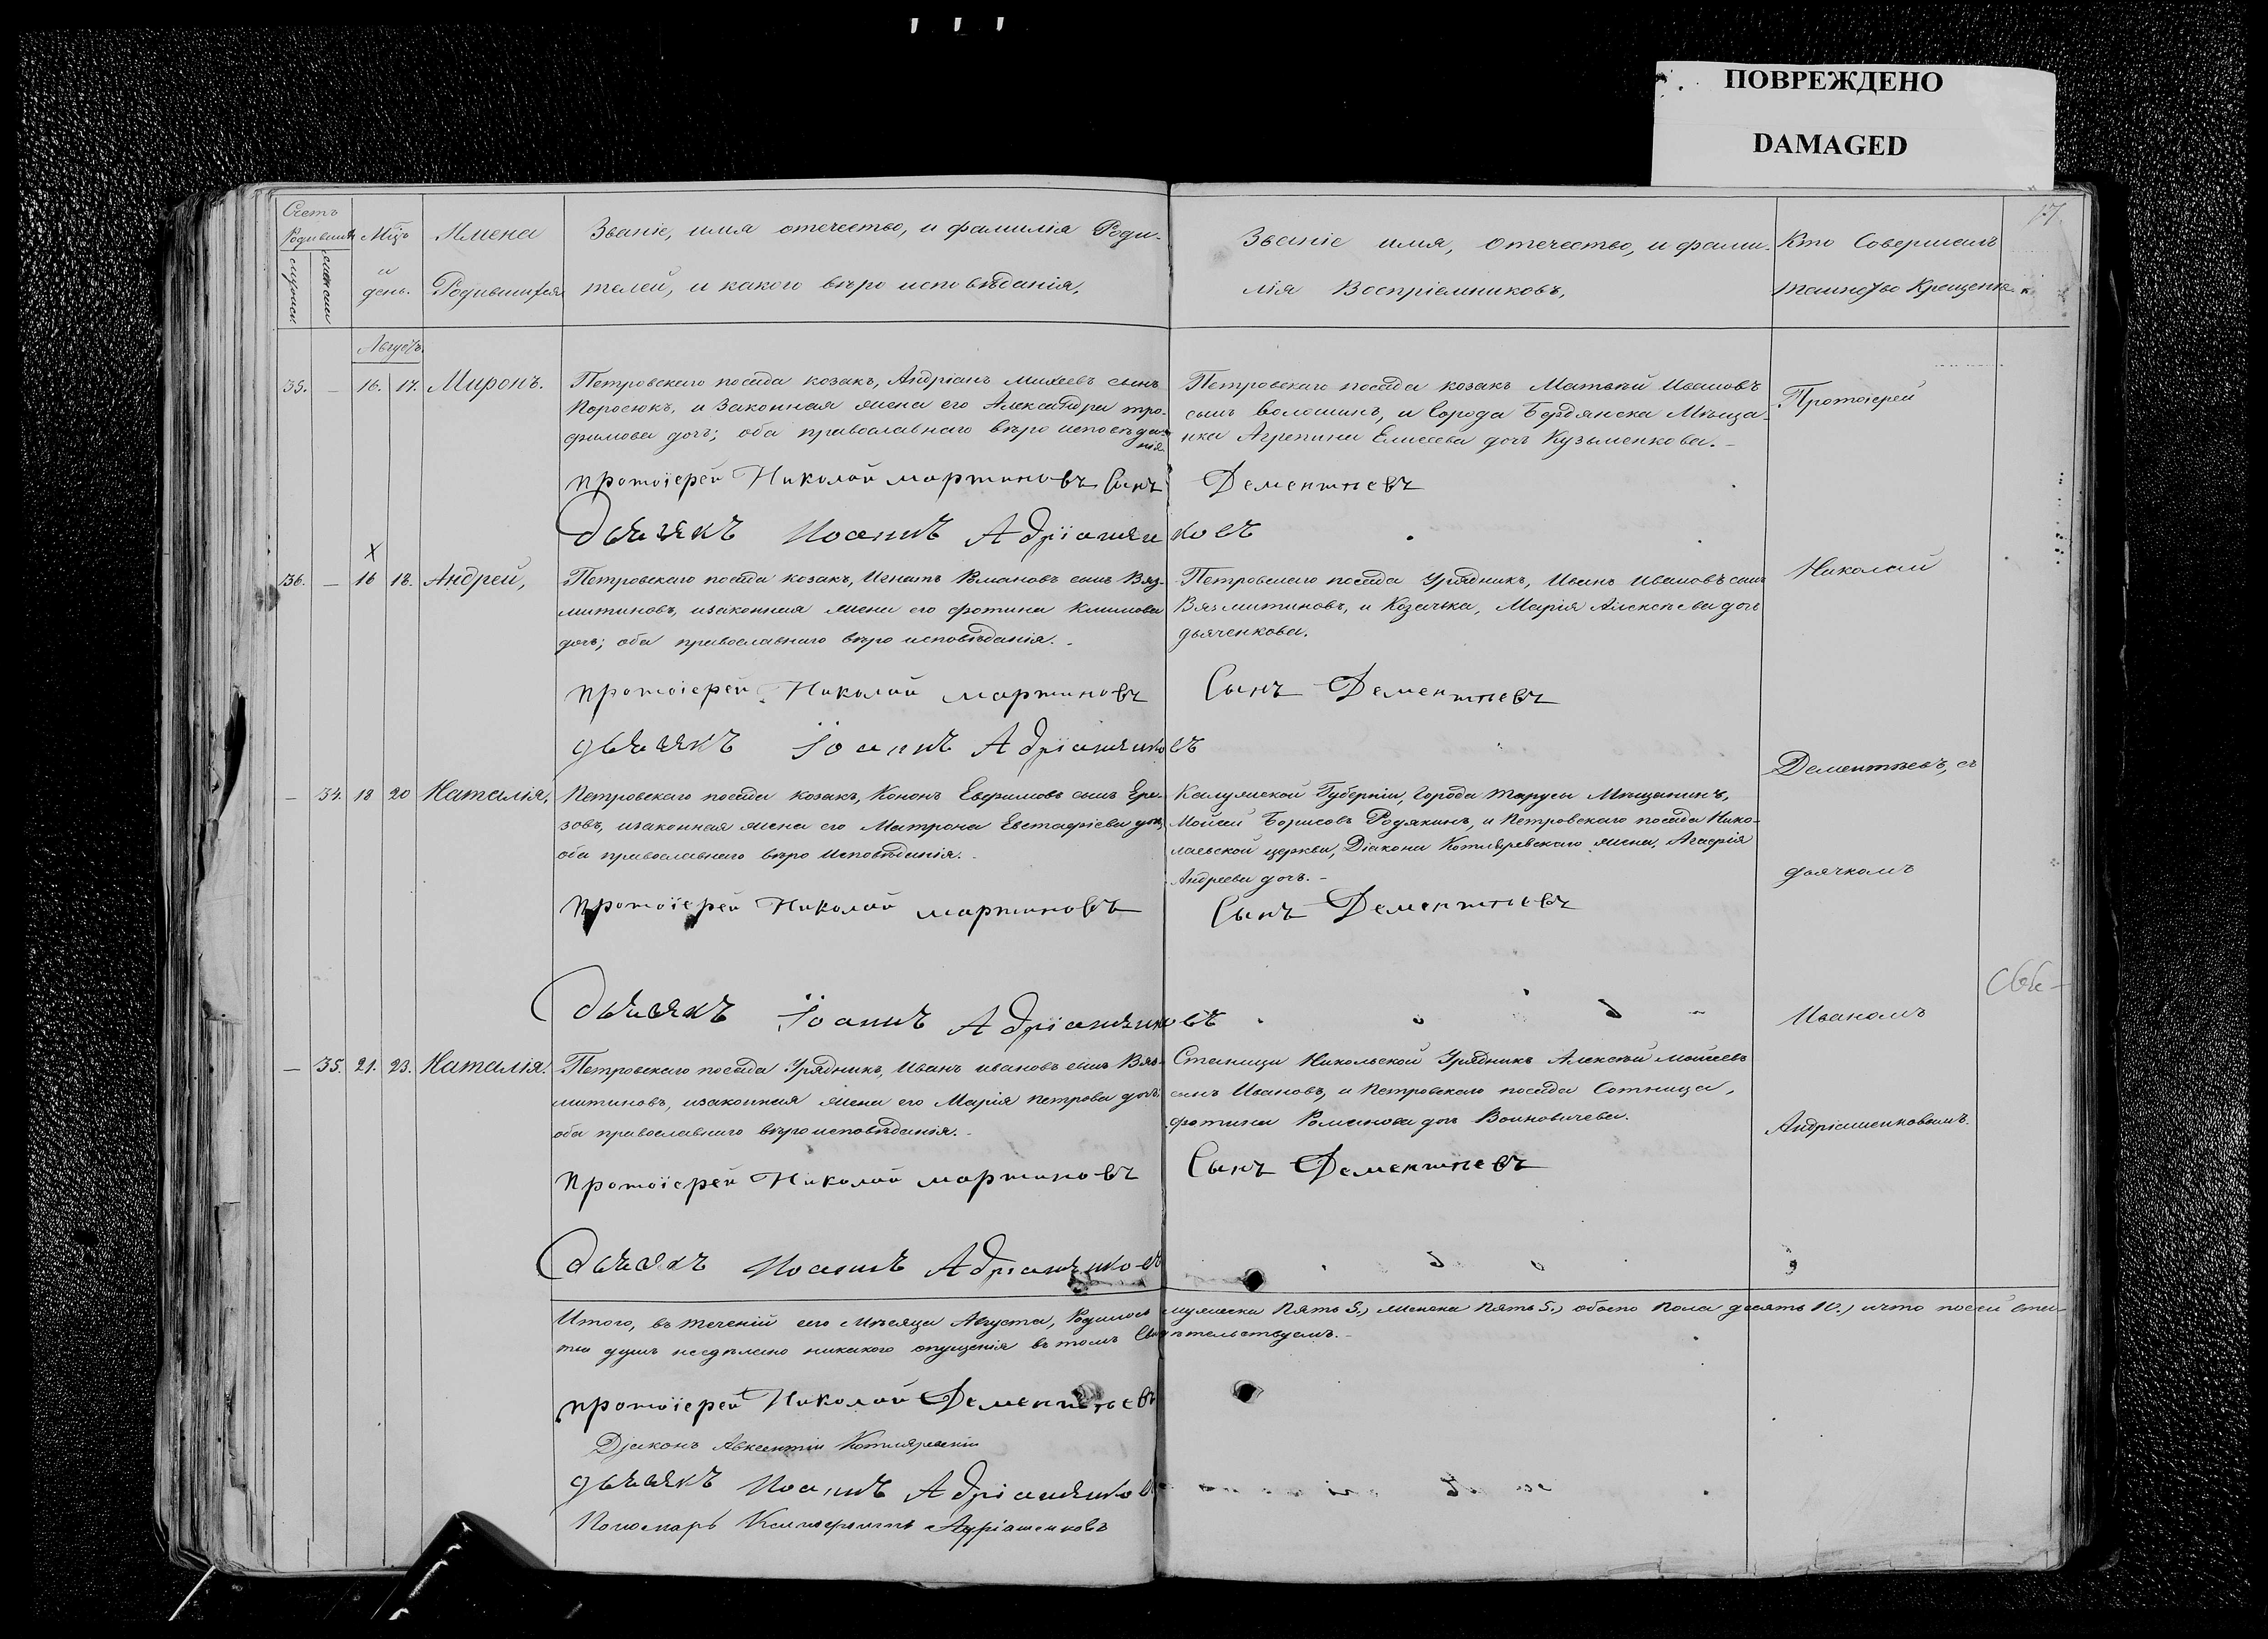 ПОВРЕЖДЕНО
DAMAGED
17.
Счетъ
Родивших
Мцъ
и
день.
Имена
Родившихся
Званіе, имя отечество, и фамилія Роди-
телей, и какого вѣро исповѣданія,
Званіе имя, отечество, и фами-
лія Воспріемниковъ,
Кто Совершалъ
таинство Крещенія
Августъ
35. – 16. 17. Миронъ.
Петровскаго посада козакъ, Андріанъ Михеевъ сынъ
Поросюкъ, и законная жена его Александра тро-
фимова дочь; оба православнаго вѣро исповѣда-
нія
Петровскаго посада козакъ Матвѣй Ивановъ
сынъ Волошинъ, и Города Бердянска Мѣща-
нка Агрепина Елисеева дочь Кузьменкова. –
Протоіерей
протоіерей Николай мартиновъ Сынъ Дементьевъ
дьячекъ Иоаннъ Адріаненковъ
X
36. – 16 18. Андрей,
Петровскаго посада козакъ, Игнатъ Романовъ сынъ Вяз-
митиновъ, изаконная жена его фотина климова
дочь; оба православнаго вѣро исповѣданія. –
Петровскаго посада Урядникъ, Иванъ Ивановъ сынъ
Вязмитиновъ, и Козачька, Марія Алексѣева дочь
дьяченкова.
Николай
протоіерей Николай мартиновъ Сынъ Дементьевъ
дьячекъ Іоаннъ Адріаненковъ
Дементьевъ, съ
– 34. 18 20 Наталія,
Петровскаго посада козакъ, Кононъ Евфимовъ сынъ Ере-
зовъ, изаконная жена его Матрона Евстафіева дочь,
оба православнаго вѣро Исповѣданія. –
Калужской Губерніи, Города Тарусы Мѣщанинъ,
Мойсей Борисовъ Родякинъ, и Петровскаго посада Нико-
лаевской церкви, Діакона Котляревскаго жена, Агафія
Андреева дочь. –
дьячкомъ
протоіерей Николай мартиновъ Сынъ Дементьевъ
дьячекъ Іоаннъ Адріаненковъ
Иваномъ
– 35. 21. 23. Наталія.
Петровскаго посада Урядникъ, Иванъ ивановъ сынъ Вяз-
митиновъ, изаконная жена его Марія петрова дочь
оба православнаго вѣроисповѣданія. –
Станицы Никольской Урядникъ Алексѣй мойсеевъ
сынъ Ивановъ, и Петровскаго посада Сотница,
фотина Романова дочь Воиновичева.
Андріашенковымъ.
протоіерей Николай мартиновъ Сынъ Дементьевъ
дьячекъ Иоаннъ Адріаненковъ
Итого, въ теченіи сего мѣсяца Августа, Родилось мужеска пять 5.) женска пять 5.) обоего пола десять 10.) ичто посей
душъ несдѣлано никакого опущенія въ томъ Свидѣтельствуемъ. –
протоіерей Николай Дементьевъ
Діаконъ Авксентій Котляревскій
дьячекъ Иоаннъ Адріаненковъ
Пономарь Ксенофонтъ Адріашенковъ